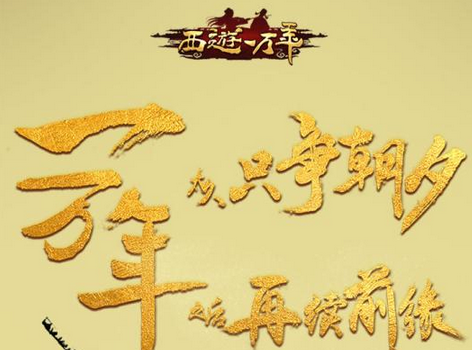 西遊一万年
一万年
太久只争朝夕
后再续前缘